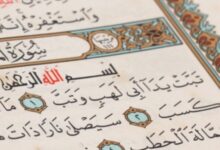 وَاسْتَغْفِرْهُ
سُورَةُ
بِسْمِ اللَّهِ الرَّحْمَٰنِ
تَبَّتْ يَدَا أَبِي لَهَبٍ وَتَبَّ ١
كَسَبَ ٢ سَيَصْلَىٰ نَارًا ذَاتَ
الْحَطَبِ